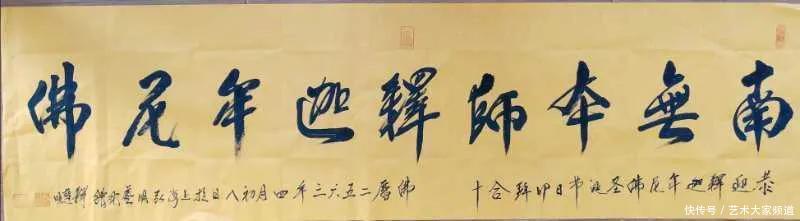 南無本師釋迦牟尼佛
恭迎釋迦牟尼佛圣诞节日叩拜合十
佛曆二五六三年四月初八日於上海弘
快传号/艺术大家频道